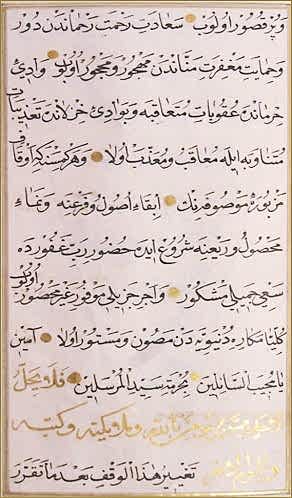 و پر قصور اولوب سعادت رحمت رحماندن دور
و حمایت مغفرت مناندن مهجور و مجور اولوب وادئ
حرماندن عقوبات متعاقبه و بوادئ خزلاندن تعذیبات
متناوبه ایله معاقب و معذب اولا و هر کمسنه که اوقاف
مزبورهٔ موصوفه نك ابقاء اصول و فرعنه و نماء
محصول و ریعنه شروع ایده حضور رب غفورده
سعی جمیلی مشکور و اجر جزیلی موفور اولوب غیر محصور
کلیا مکاره دنیویه دن مصون و مستور اولا آمین
یا مجیب السائلین بحرمة سید المرسلین فلا یحل
تغییر هذا الوقف بعد ما تقرر